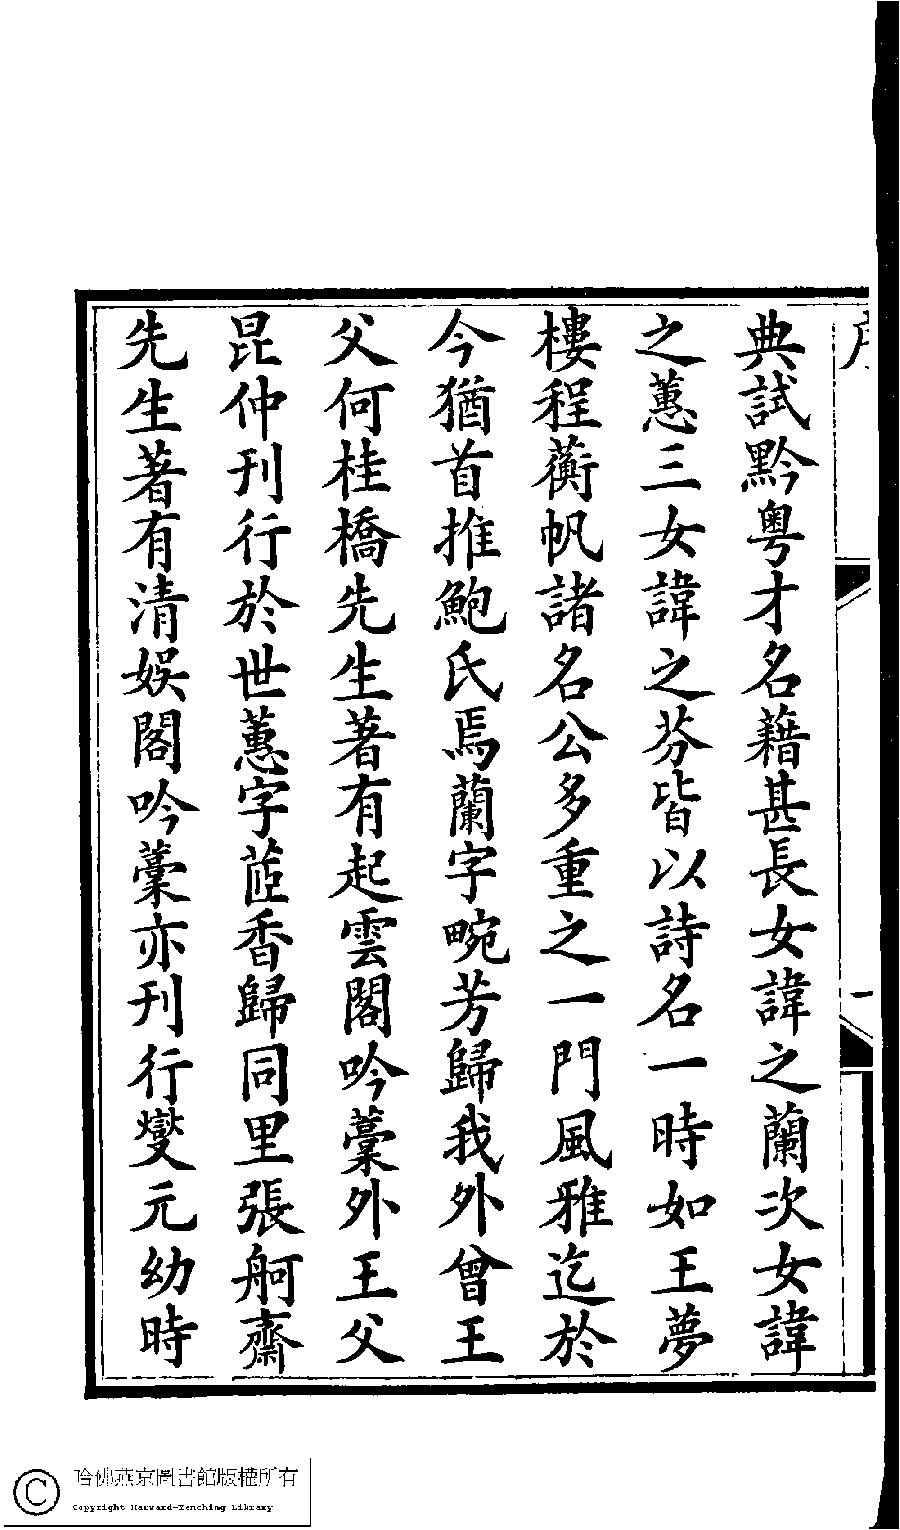 序
一
典試黔粤才名藉甚長女諱之蘭次女諱
之蕙三女諱之芬皆以詩名一時如王夢
樓程蘅帆諸名公多重之一門風雅迄於
今猶首推鮑氏焉蘭字畹芳歸我外曾王
父何桂橋先生著有起雲閣吟藁外王父
昆仲刊行於世蕙字茝香歸同里張舸齋
先生著有清娛閣吟藁亦刊行燮元幼時
哈佛燕京圖書館版權所有
Copyright Harvard-Yenching Library